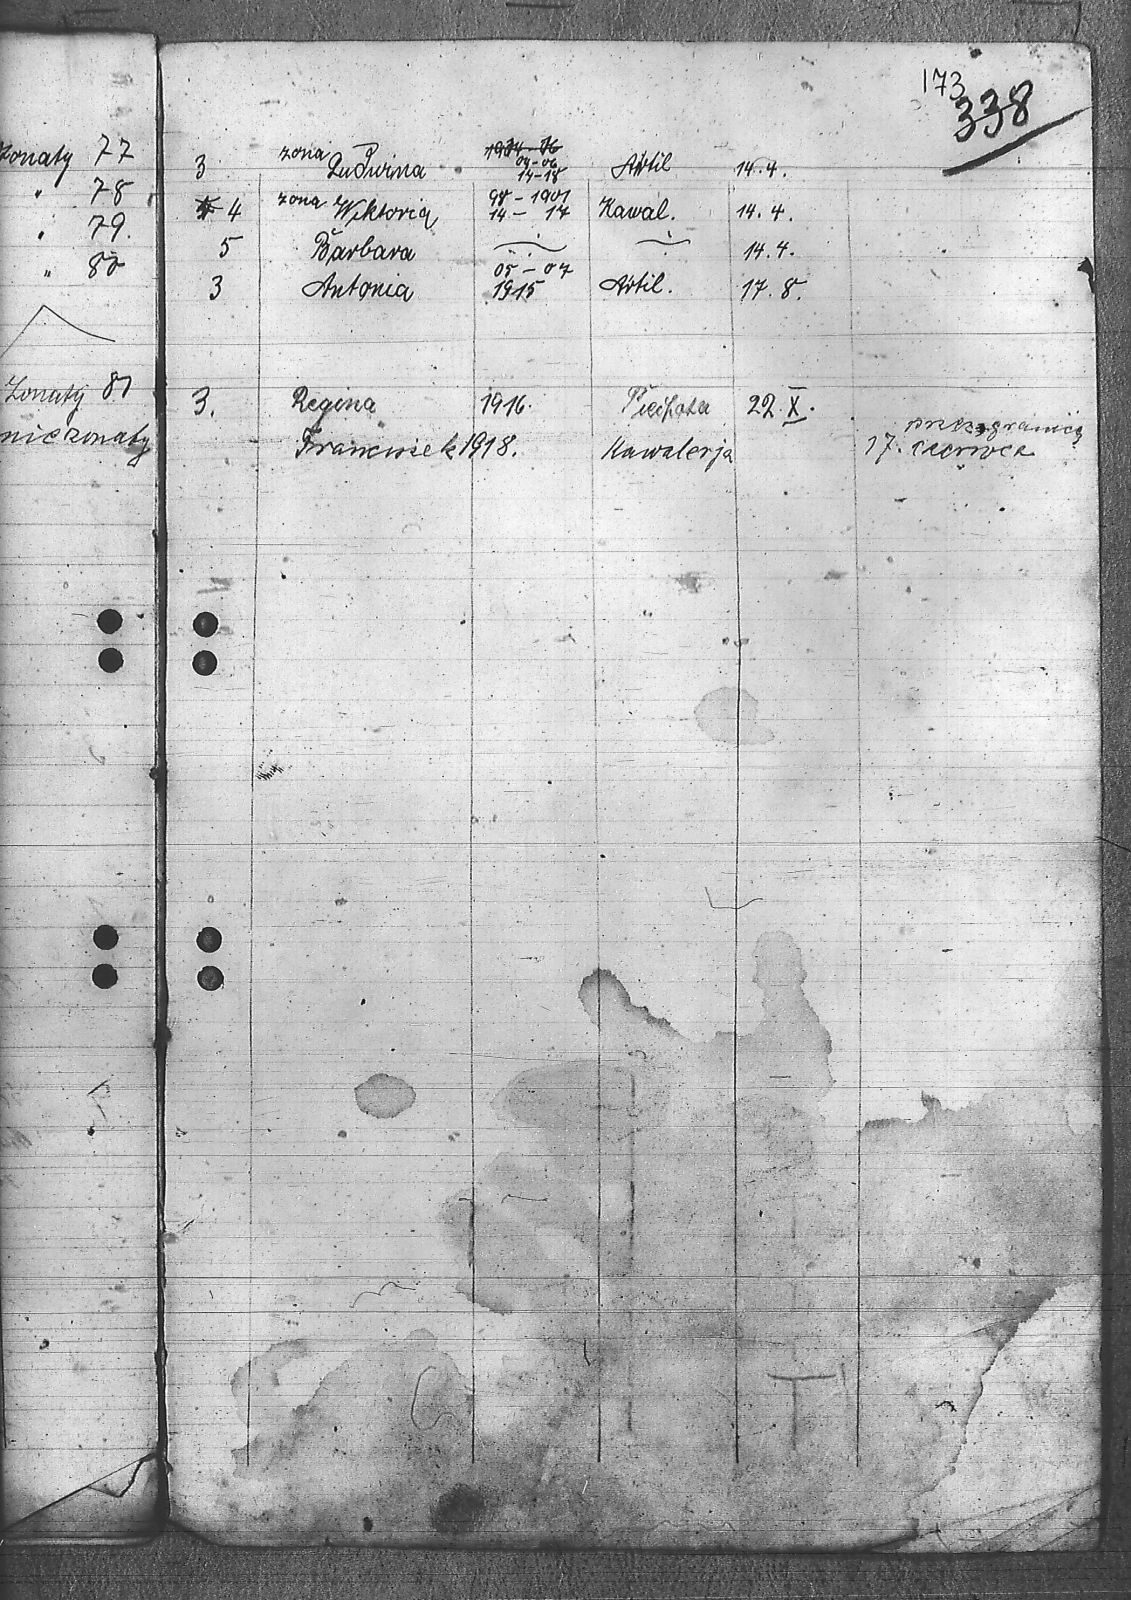 173
338
żonaty 77 3 żona Ludwina 04-06 14-18 Artil 14.4.
" 78 4 żona Wiktoria 98-1901 14-17 Kawal. 14.4.
" 79. 5 Barbara 14.4.
" 80 3 Antonia 05-07 1915 Artil. 17.8.
Żonaty 81 3. Regina 1916. Piechota 22.X.
nieżonaty Franciszek 1918. Kawalerja 17. czerwca
przez granicę